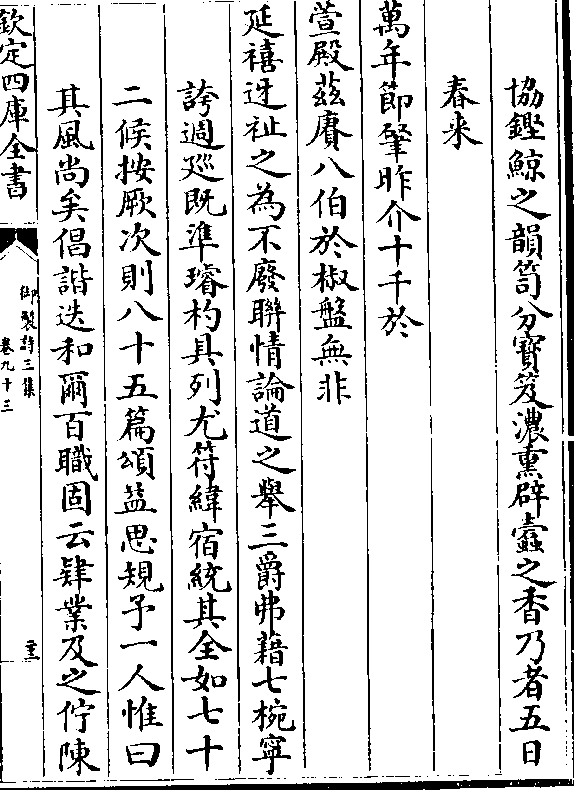 協鏗鯨之韻笥分寶笈濃熏辟蠧之香乃者五日
春来
萬年節肇昨介十千於
萱殿茲賡八伯於椒盤無非
延禧迓祉之為不廢聨情論道之舉三爵弗藉七椀寧
誇週廵既準璿杓具列尤符緯宿統其全如七十
二候按厥次則八十五篇頌益思規予一人惟曰
其風尚矣倡諧迭和爾百職固云肄業及之佇陳
欽定四庫全書
御製詩三集
卷九十三